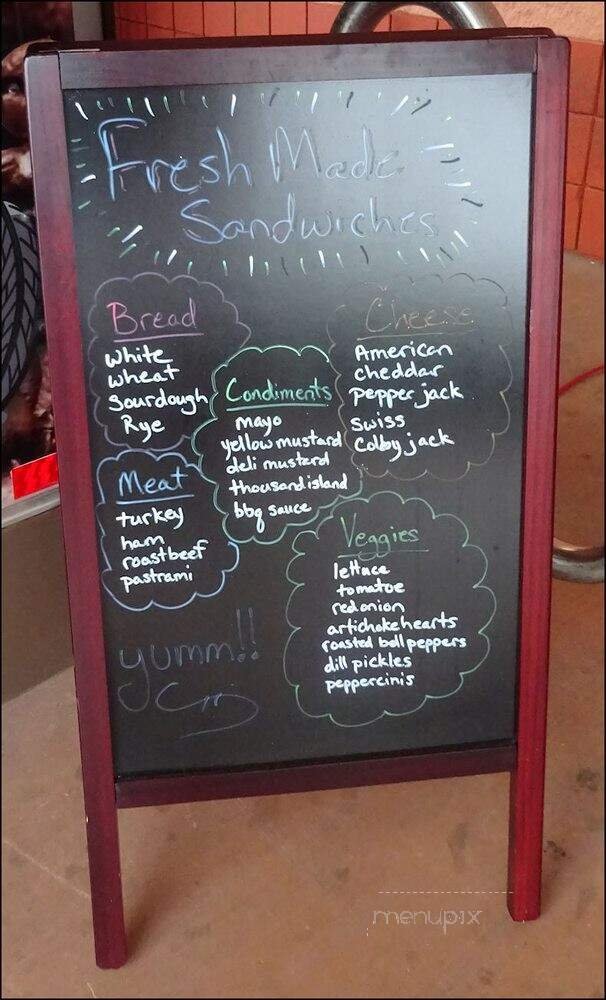 Fresh Made
Sandwiches
Bread
white
wheat
Sourdough
Rye
Meat
turkey
ham
roast beef
pastrami
Condiments
mayo
yellow mustard
deli mustard
thousand island
bbq sauce
Cheese
American
cheddar
pepper jack
Swiss
Colby jack
Veggies
lettuce
tomatoe
red onion
artichoke hearts
roasted bell peppers
dill pickles
peppercinis
yumm!!
menupix